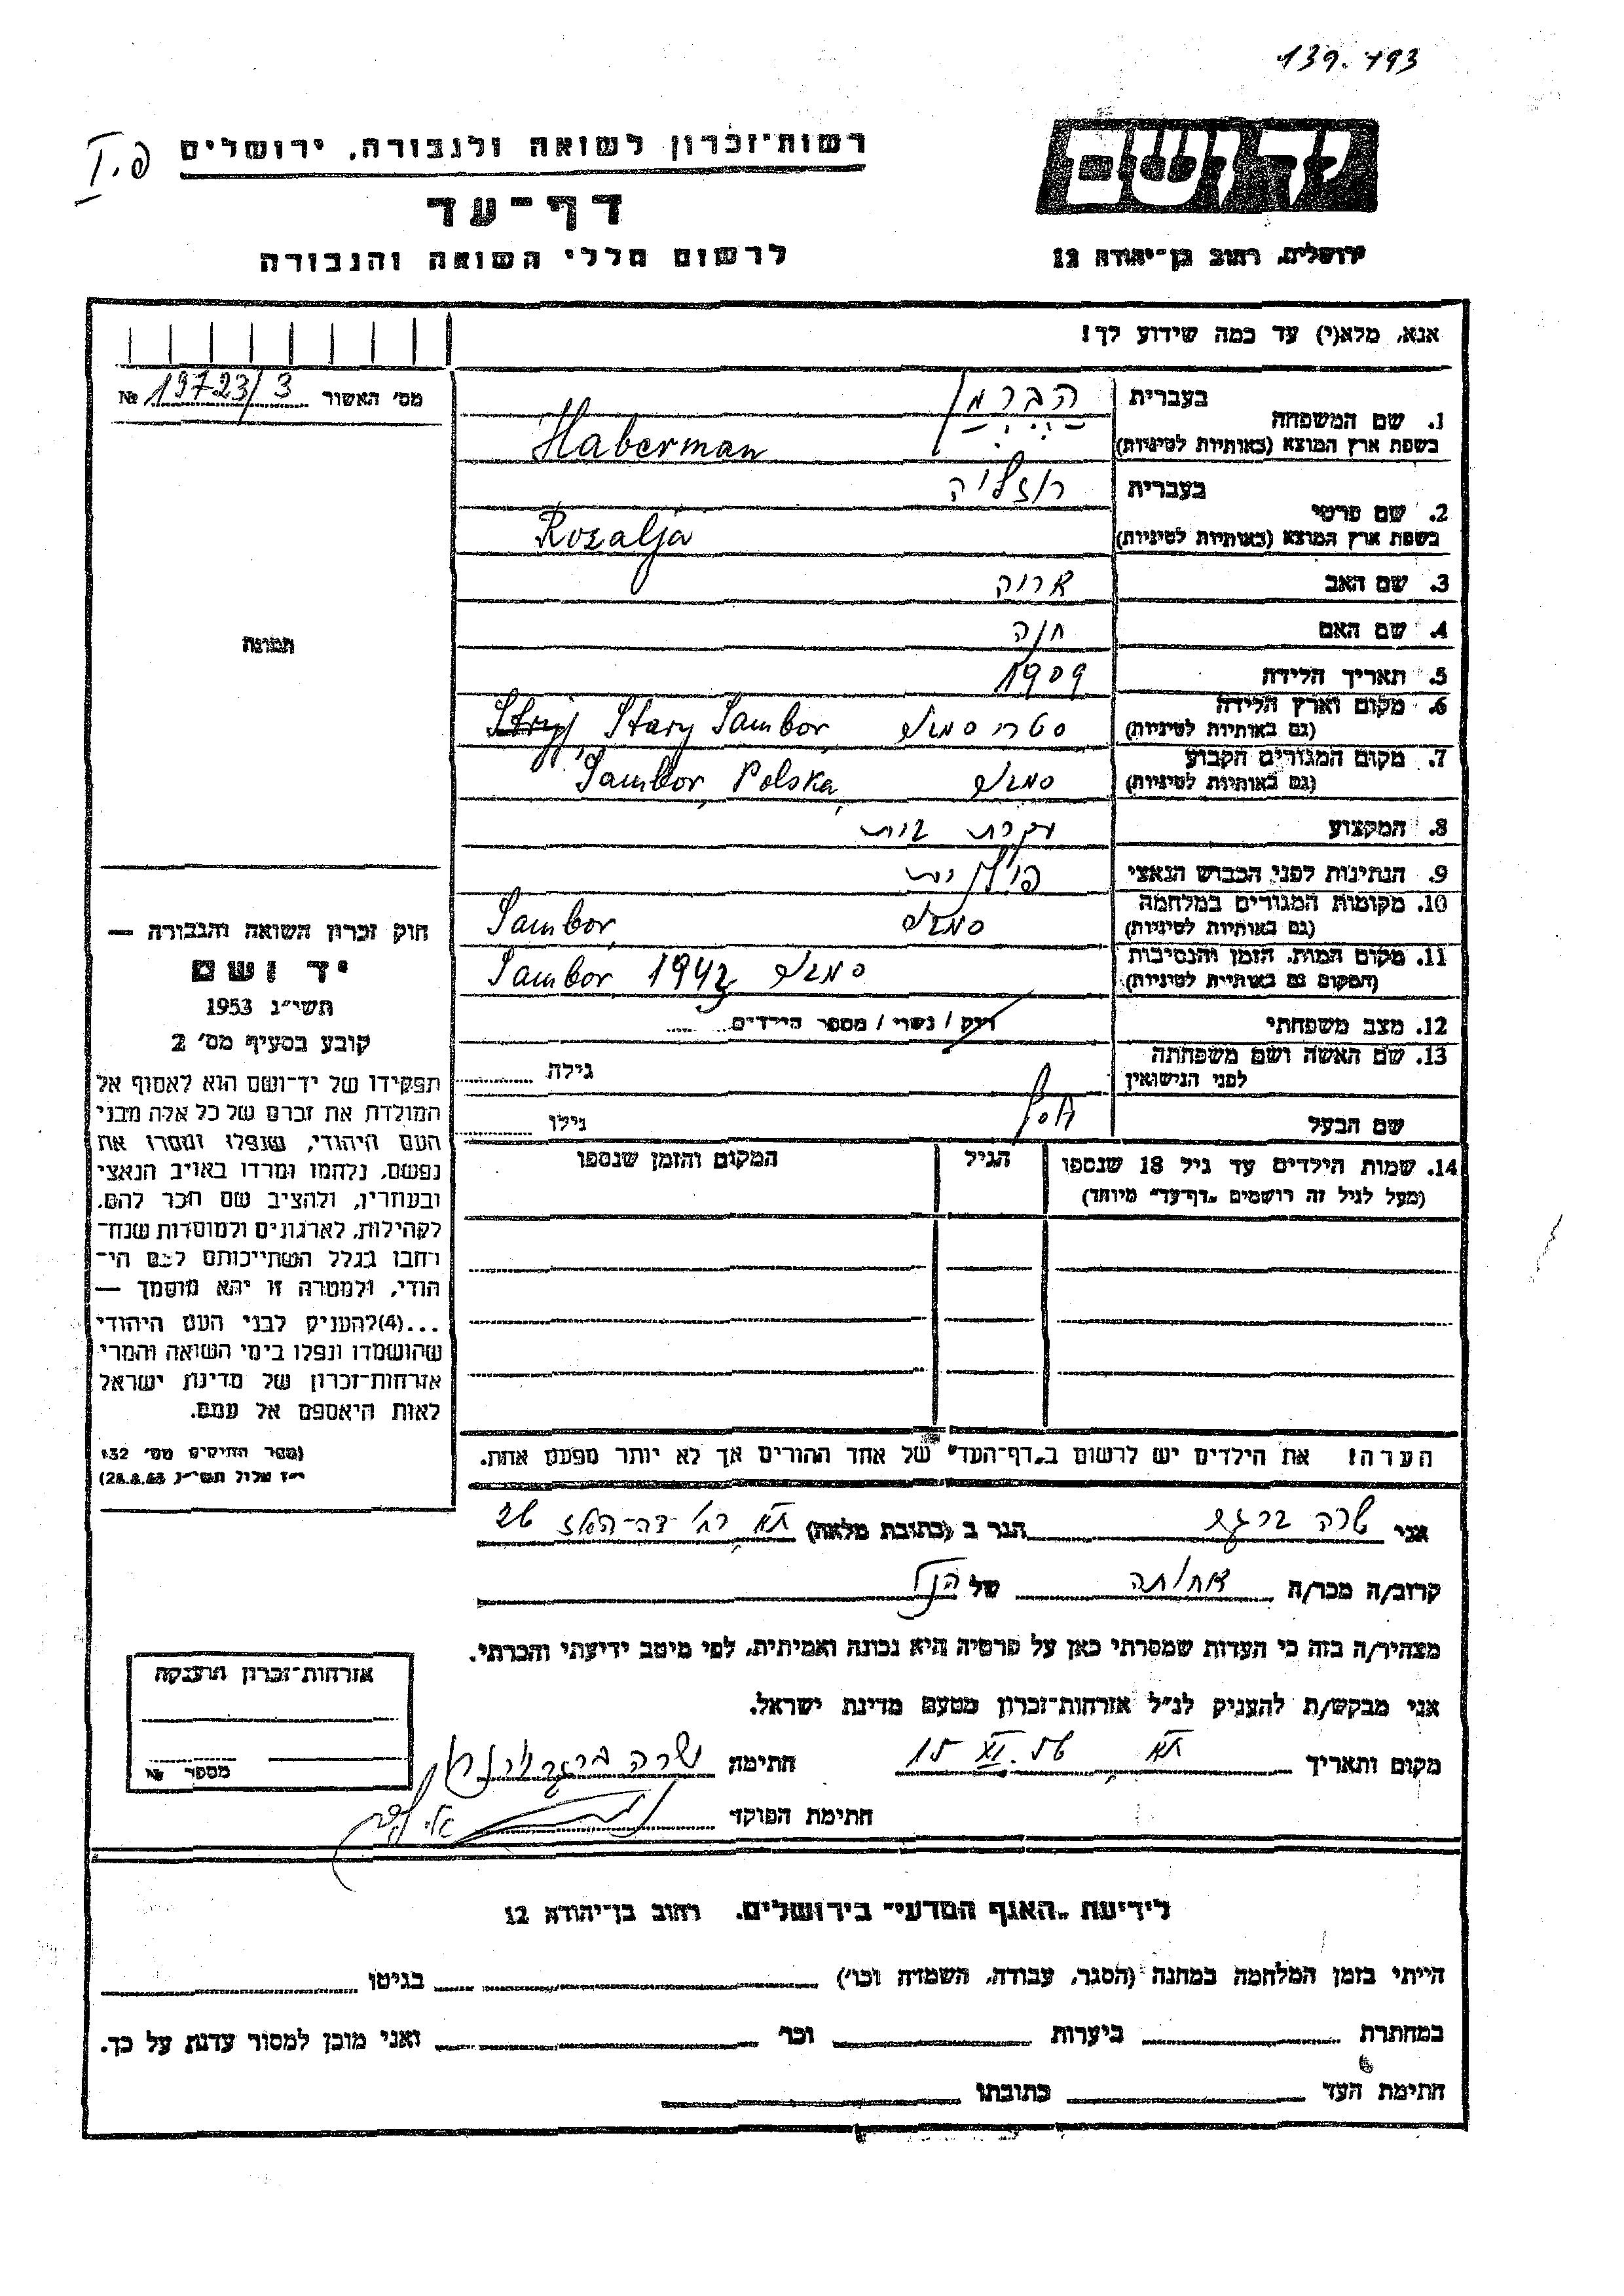 139.493
רשות־זכרון לשואה ולגבורה, ירושלים
פ.I
דף־עד
לרשום חללי השואה והגבורה
יד ושם
ירושלים, רחוב בן־יהודה 12
אנא, מלא(י) עד כמה שידוע לך!
מס׳ האשור 19723/3 №
1. שם המשפחה
בעברית הברמן
בשפת ארץ המוצא (באותיות לטיניות) Haberman
2. שם פרטי
בעברית רוזליה
בשפת ארץ המוצא (באותיות לטיניות) Rozalja
3. שם האב
4. שם האם חנה
5. תאריך הלידה 1909
6. מקום וארץ הלידה
(גם באותיות לטיניות) סטרי סמבור Stary Sambor Stryj
7. מקום המגורים הקבוע
(גם באותיות לטיניות) סמבור Sambor, Polska,
8. המקצוע עקרת בית
9. הנתינות לפני הכבוש הנאצי פולנית
10. מקומות המגורים במלחמה
(גם באותיות לטיניות) סמבור Sambor
11. מקום המות, הזמן והנסיבות
(המקום גם באותיות לטיניות) סמבור Sambor 1942
12. מצב משפחתי רווק / נשוי / מספר הילדים
13. שם האשה ושם משפחתה
לפני הנישואין גילה
שם הבעל יוסף גילו
14. שמות הילדים עד גיל 18 שנספו הגיל המקום והזמן שנספו
(מעל לגיל זה רושמים „דף־עד״ מיוחד)
הערה! את הילדים יש לרשום ב„דף־העד״ של אחד ההורים אך לא יותר מפעם אחת.
תמונה
חוק זכרון השואה והגבורה —
יד ושם
תשי״ג 1953
קובע בסעיף מס׳ 2
תפקידו של יד־ושם הוא לאסוף אל
המולדת את זכרם של כל אלה מבני
העם היהודי, שנפלו ומסרו את
נפשם, נלחמו ומרדו באויב הנאצי
ובעוזריו, ולהציב שם וזכר להם,
לקהילות, לארגונים ולמוסדות שנח־
רבו בגלל השתייכותם לעם הי־
הודי, ולמטרה זו יהא מוסמך —
...(4) להעניק לבני העם היהודי
שהושמדו ונפלו בימי השואה והמרי
אזרחות־זכרון של מדינת ישראל
לאות היאספם אל עמם.
(ספר החוקים מס׳ 132
י״ז אלול תשי״ג 28.8.53)
אני שרה הגר ב (כתובת מלאה) תא רח׳
קרוב/ה מכר/ה אחותה של הנ״ל
מצהיר/ה בזה כי העדות שמסרתי כאן על פרטיה היא נכונה ואמיתית, לפי מיטב ידיעתי והכרתי.
אני מבקש/ת להעניק לנ״ל אזרחות־זכרון מטעם מדינת ישראל.
מקום ותאריך תא 15 XI.56 חתימה שרה
חתימת הפוקד
אזרחות־זכרון הוענקה
מספר №
לידיעת „האגף המדעי״ בירושלים, רחוב בן־יהודה 12
הייתי בזמן המלחמה במחנה (הסגר, עבודה, השמדה וכו׳) בגיטו
במחתרת ביערות וכו׳ ואני מוכן למסור עדות על כך.
חתימת העד כתובתו